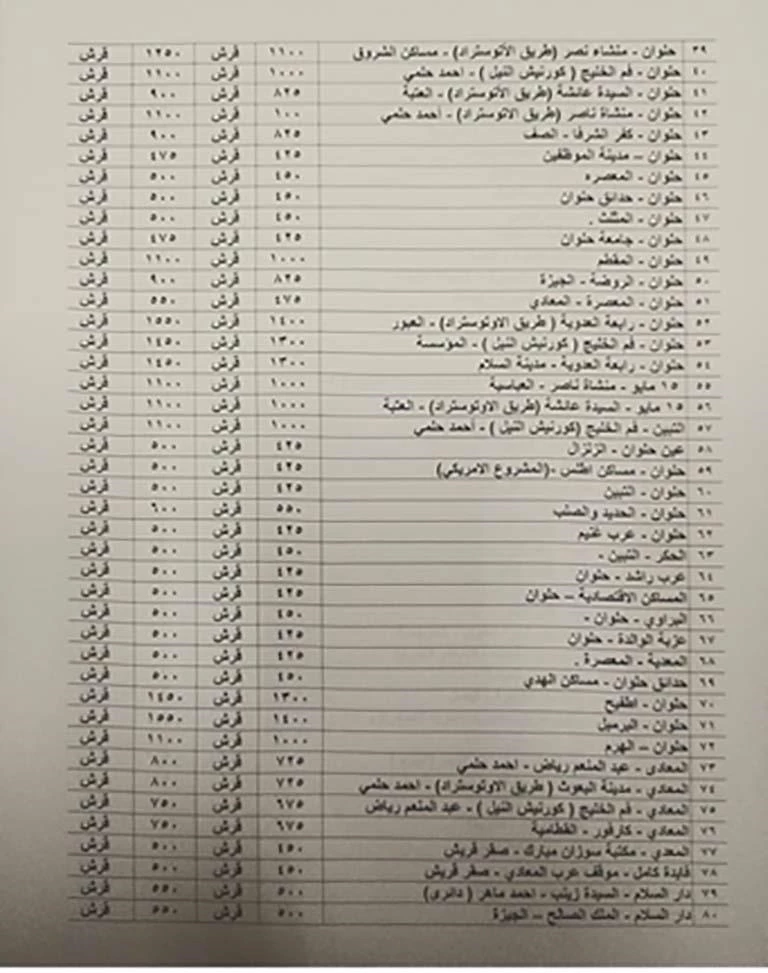 ٣٩ حلوان - منشاه نصر (طريق الأتوستراد) - مساكن الشروق ١١٠٠ قرش ١٢٥٠ قرش
٤٠ حلوان - فم الخليج ( كورنيش النيل ) - احمد حلمي ١٠٠٠ قرش ١١٠٠ قرش
٤١ حلوان - السيدة عائشة (طريق الأتوستراد) - العتبة ٨٢٥ قرش ٩٠٠ قرش
٤٢ حلوان - منشاة ناصر (طريق الاتوستراد) - أحمد حلمي ١٠٠ قرش ١١٠٠ قرش
٤٣ حلوان - كفر الشرفا - الصف ٨٢٥ قرش ٩٠٠ قرش
٤٤ حلوان – مدينة الموظفين ٤٢٥ قرش ٤٧٥ قرش
٤٥ حلوان - المعصره ٤٥٠ قرش ٥٠٠ قرش
٤٦ حلوان - حدائق حلوان ٤٥٠ قرش ٥٠٠ قرش
٤٧ حلوان - المثلث . ٤٥٠ قرش ٥٠٠ قرش
٤٨ حلوان - جامعة حلوان ٤٢٥ قرش ٤٧٥ قرش
٤٩ حلوان - المقطم ١٠٠٠ قرش ١١٠٠ قرش
٥٠ حلوان - الروضة - الجيزة ٨٢٥ قرش ٩٠٠ قرش
٥١ حلوان - المعصرة - المعادي ٤٧٥ قرش ٥٥٠ قرش
٥٢ حلوان - رابعة العدوية ( طريق الاوتوستراد) - العبور ١٤٠٠ قرش ١٥٥٠ قرش
٥٣ حلوان - فم الخليج ( كورنيش النيل ) - المؤسسة ١٣٠٠ قرش ١٤٥٠ قرش
٥٤ حلوان - رابعة العدوية - مدينة السلام ١٣٠٠ قرش ١٤٥٠ قرش
٥٥ ١٥ مايو - منشاة ناصر - العباسية ١٠٠٠ قرش ١١٠٠ قرش
٥٦ ١٥ مايو - السيدة عائشة (طريق الاوتوستراد) - العتبة ١٠٠٠ قرش ١١٠٠ قرش
٥٧ التبين - فم الخليج (كورنيش النيل ) - أحمد حلمي ١٠٠٠ قرش ١١٠٠ قرش
٥٨ عين حلوان - الزلزال ٤٢٥ قرش ٥٠٠ قرش
٥٩ حلوان - مساكن اطلس -(المشروع الامريكي) ٤٢٥ قرش ٥٠٠ قرش
٦٠ حلوان - التبين ٤٢٥ قرش ٥٠٠ قرش
٦١ حلوان - الحديد والصلب ٥٥٠ قرش ٦٠٠ قرش
٦٢ حلوان - عرب غنيم ٤٢٥ قرش ٥٠٠ قرش
٦٣ الحكر - التبين - ٤٥٠ قرش ٥٠٠ قرش
٦٤ عرب راشد - حلوان ٤٢٥ قرش ٥٠٠ قرش
٦٥ المساكن الاقتصادية – حلوان ٤٢٥ قرش ٥٠٠ قرش
٦٦ البراوي - حلوان - ٤٥٠ قرش ٥٠٠ قرش
٦٧ عزبة الوالدة - حلوان ٤٢٥ قرش ٥٠٠ قرش
٦٨ المعدية - المعصرة . ٤٢٥ قرش ٥٠٠ قرش
٦٩ حدائق حلوان - مساكن الهدي ٤٥٠ قرش ٥٠٠ قرش
٧٠ حلوان - اطفيح ١٣٠٠ قرش ١٤٥٠ قرش
٧١ حلوان - البرمبل ١٤٠٠ قرش ١٥٥٠ قرش
٧٢ حلوان – الهرم ١٠٠٠ قرش ١١٠٠ قرش
٧٣ المعادى - عبد المنعم رياض - احمد حلمي ٧٢٥ قرش ٨٠٠ قرش
٧٤ المعادي - مدينة البعوث ( طريق الاوتوستراد) - احمد حلمي ٧٢٥ قرش ٨٠٠ قرش
٧٥ المعادي - فم الخليج ( كورنيش النيل ) - عبد المنعم رياض ٦٧٥ قرش ٧٥٠ قرش
٧٦ المعادي - كارفور - القطامية ٦٧٥ قرش ٧٥٠ قرش
٧٧ المعدي - مكتبة سوزان مبارك - صقر قريش ٤٥٠ قرش ٥٠٠ قرش
٧٨ فايدة كامل - موقف عرب المعادي - صقر قريش ٤٥٠ قرش ٥٠٠ قرش
٧٩ دار السلام - السيدة زينب - احمد ماهر ( دائرى) ٥٠٠ قرش ٥٥٠ قرش
٨٠ دار السلام - الملك الصالح – الجيزة ٥٠٠ قرش ٥٥٠ قرش